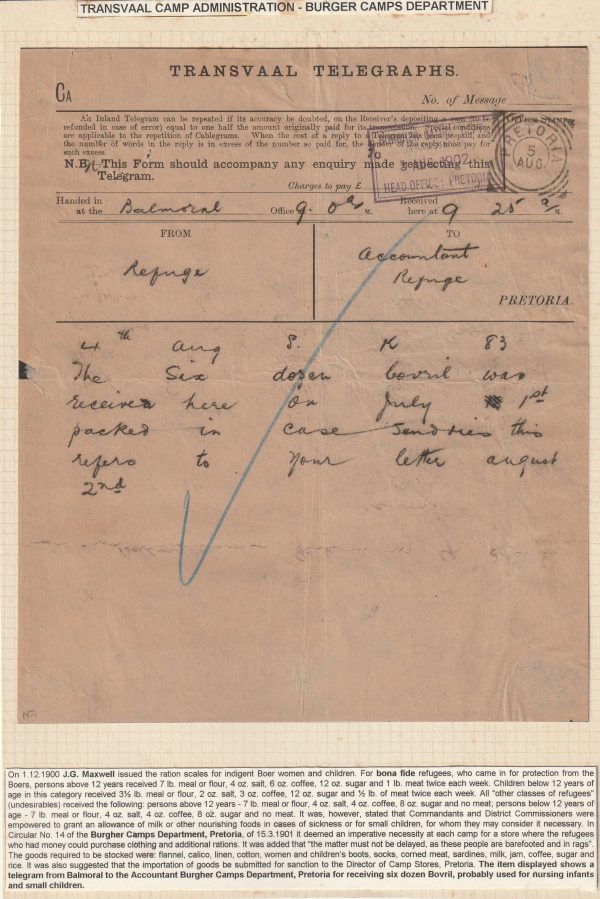 TRANSVAAL CAMP ADMINISTRATION - BURGER CAMPS DEPARTMENT
TRANSVAAL TELEGRAPHS.
CA
No. of Message
An Inland Telegram can be repeated if its accuracy be doubted, on the Receiver's depositing a sum (to be
refunded in case of error) equal to one half the amount originally paid for its transmission. Special conditions
are applicable to the repetition of Cablegrams. When the cost of a reply to a Telegram has been prepaid, and
the number of words in the reply is in excess of the number so paid for, the sender of the reply must pay for
such excess.
N.B. This Form should accompany any enquiry made respecting this
Telegram.
Charges to pay £
Office Stamp
PRETORIA
5
AUG
AUG 1902
HEAD OFFICE: PRETORIA
Handed in at the Balmoral Office 9. 0 a/ M. Received here at 9 25 a/ M.
FROM
Refuge
TO
Accountant
Refuge
PRETORIA.
4th aug 8. K 83
The Six dozen bovril was
received here on July 1st
packed in case sendries this
refers to your letter august
2nd
On 1.12.1900 J.G. Maxwell issued the ration scales for indigent Boer women and children. For bona fide refugees, who came in for protection from the
Boers, persons above 12 years received 7 lb. meal or flour, 4 oz. salt, 6 oz. coffee, 12 oz. sugar and 1 lb. meat twice each week. Children below 12 years of
age in this category received 3½ lb. meal or flour, 2 oz. salt, 3 oz. coffee, 12 oz. sugar and ½ lb. of meat twice each week. All "other classes of refugees"
(undesirables) received the following: persons above 12 years - 7 lb. meal or flour, 4 oz. salt, 4 oz. coffee, 8 oz. sugar and no meat; persons below 12 years of
age - 7 lb. meal or flour, 4 oz. salt, 4 oz. coffee, 8 oz. sugar and no meat. It was, however, stated that Commandants and District Commissioners were
empowered to grant an allowance of milk or other nourishing foods in cases of sickness or for small children, for whom they may consider it necessary. In
Circular No. 14 of the Burgher Camps Department, Pretoria, of 15.3.1901 it deemed an imperative necessity at each camp for a store where the refugees
who had money could purchase clothing and additional rations. It was added that "the matter must not be delayed, as these people are barefooted and in rags".
The goods required to be stocked were: flannel, calico, linen, cotton, women and children's boots, socks, corned meat, sardines, milk, jam, coffee, sugar and
rice. It was also suggested that the importation of goods be submitted for sanction to the Director of Camp Stores, Pretoria. The item displayed shows a
telegram from Balmoral to the Accountant Burgher Camps Department, Pretoria for receiving six dozen Bovril, probably used for nursing infants
and small children.